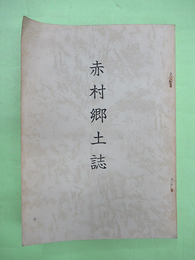 赤村郷土誌